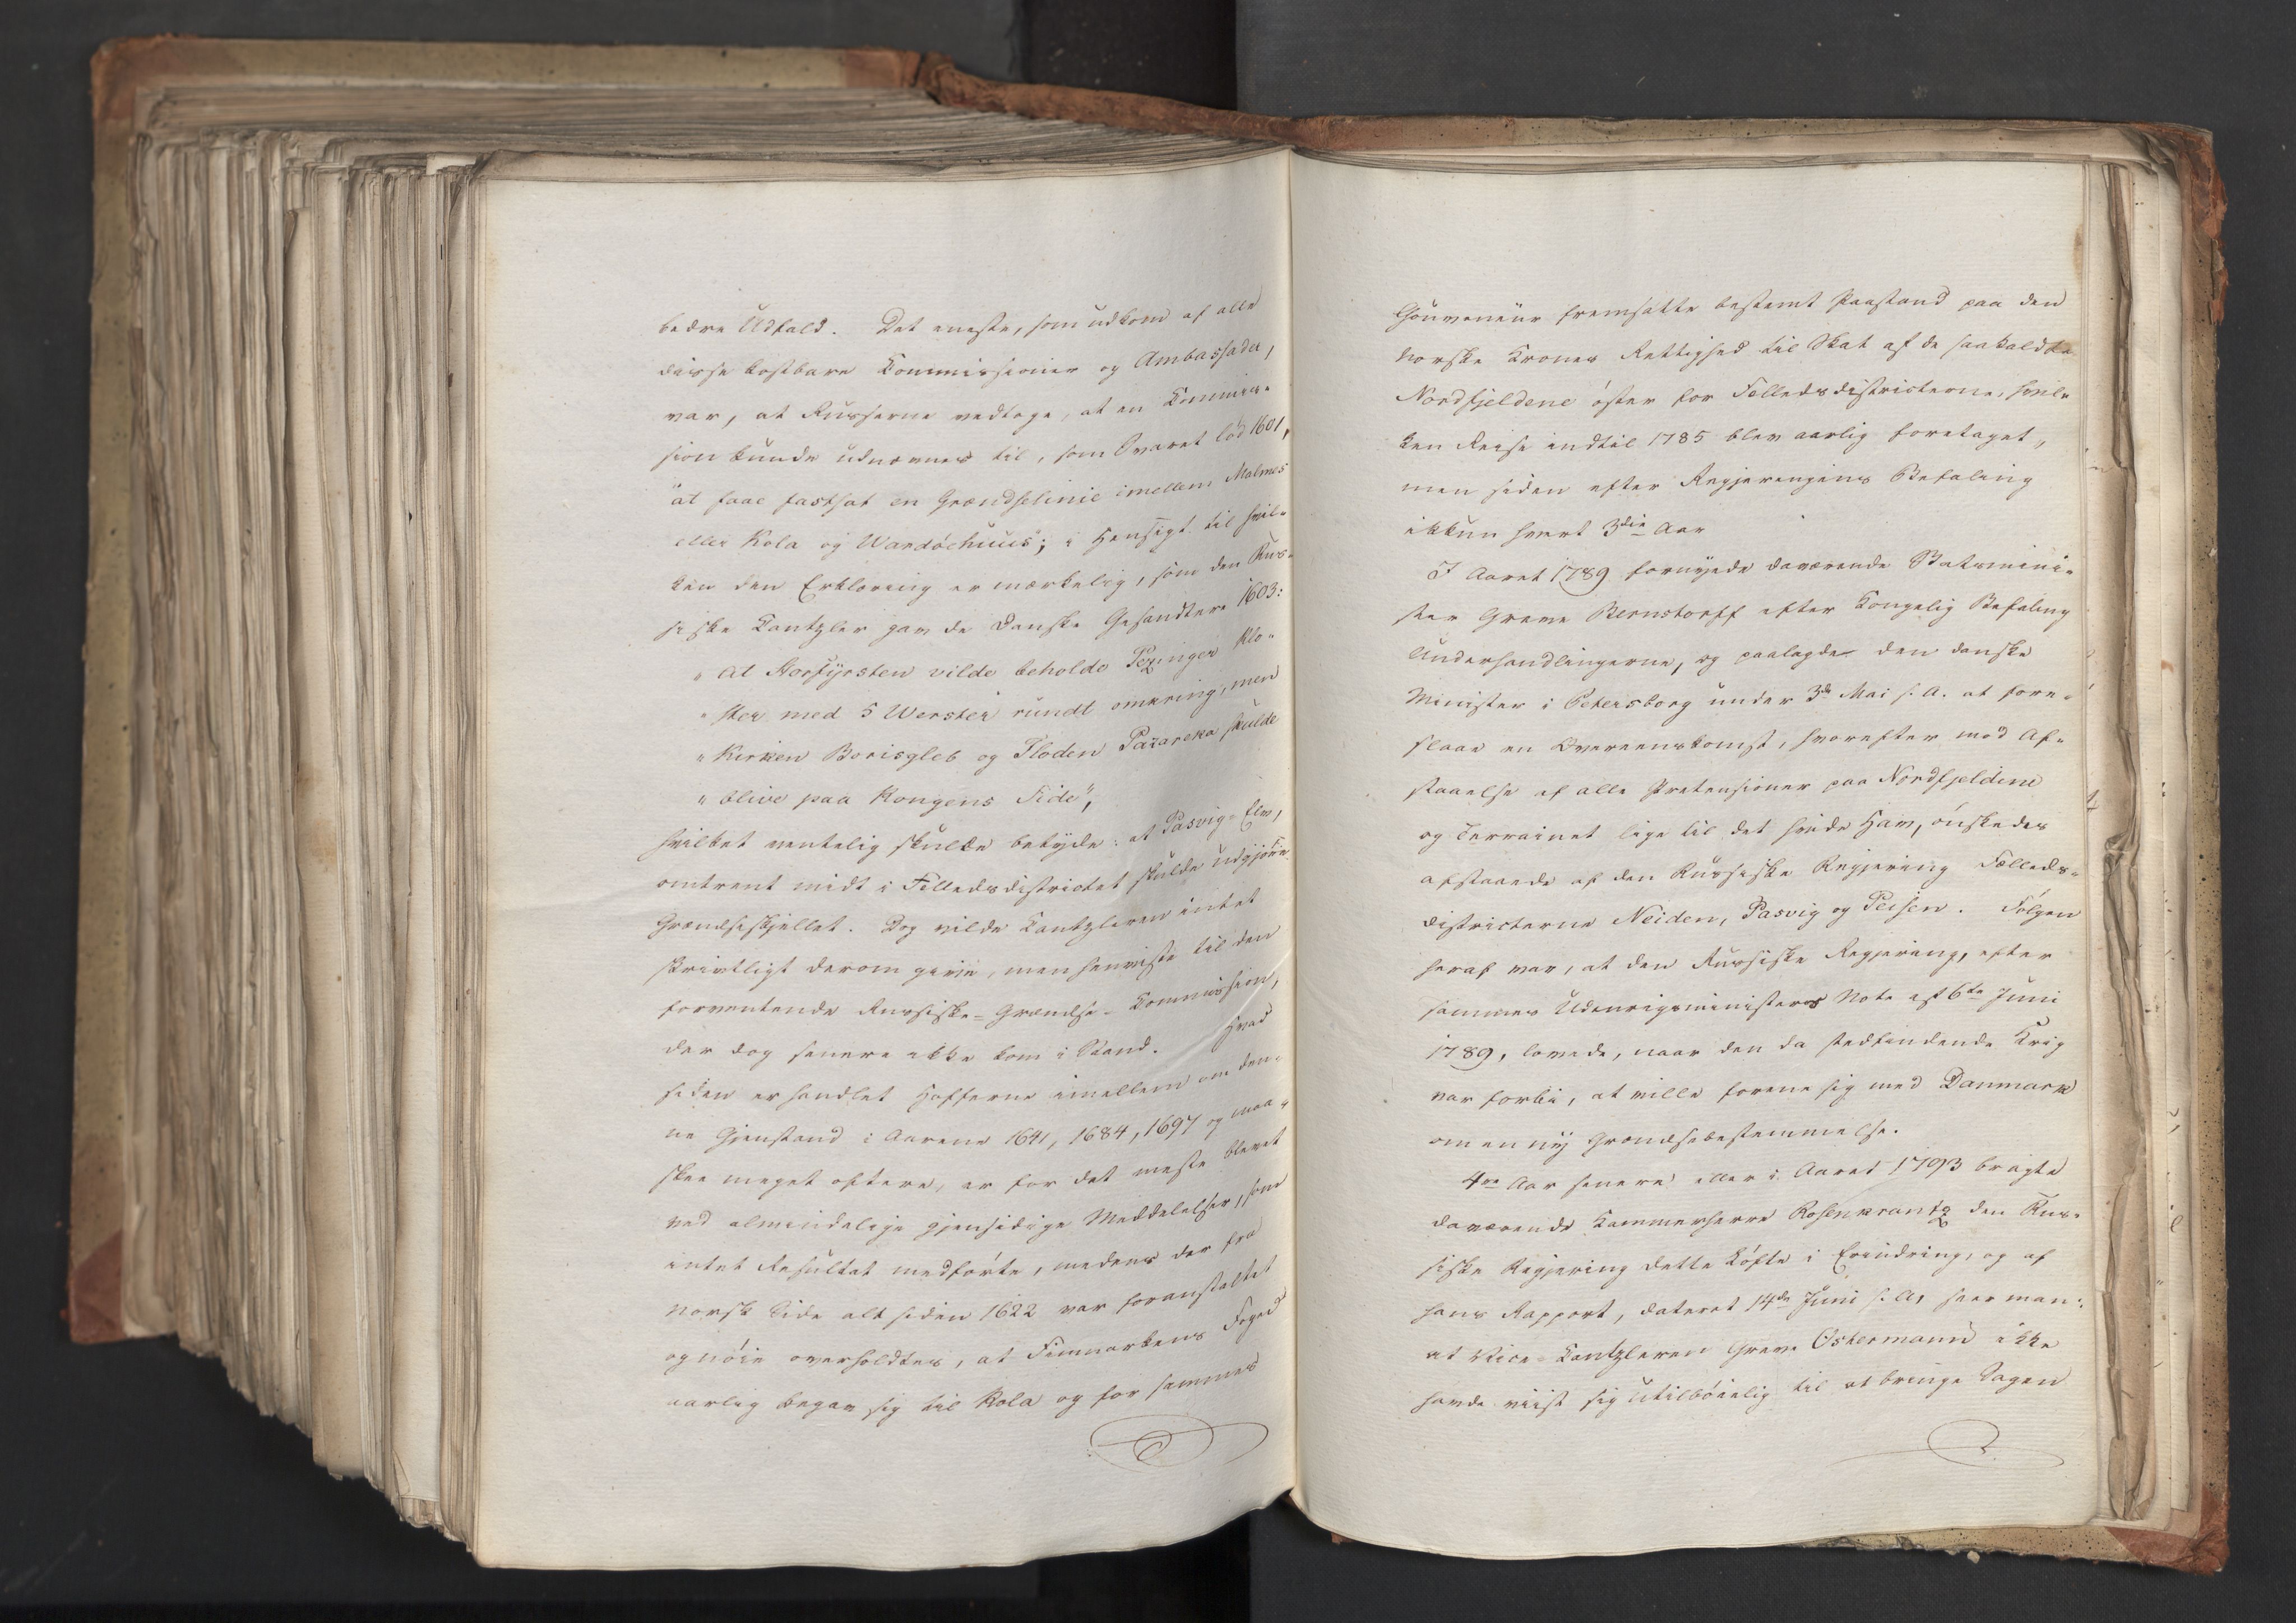 bedre Udfald. Det eneste, som udkom af alle
disse kostbare Commissioner og Ambassader,
var, at Russerne vedtoge, at en Commis-
sion kunde udnævnes til, som Svaret lød 1601,
"at faae fastsat en Grændselinie imellem Malmes
eller Kola og Wardøehuus"; i Hensigt til hvil-
ken den Erklæring er mærkelig, som den Rus-
siske Cantzler gav de Danske Gesandtere 1603:
"At Storfyrsten vilde beholde Pezinger Klo-
"ster med 5 Werster rundt omkring, men
"Kirken Borisgleb og Floden Pazareka skulde
"blive paa Kongens Side",
hvilket ventelig skulde betyde: at Pasvig-Elv,
omtrent midt i Fælledsdistrictet skulde udgjøre
Grændseskjellet. Dog vilde Cantzleren intet
skriftligt derom give, men henviste til den
forventende Russiske-Grændse-Commission,
der dog senere ikke kom i Stand. Hvad
siden er handlet Hofferne imellem om den-
ne Gjenstand i Aarene 1641, 1684, 1697 og maa-
skee meget oftere, er for det meste blevet
ved almindelige gjensidige Meddelelser, som
intet Resultat medførte, medens der fra
norsk Side alt siden 1622 var foranstaltet
og nøie overholdtes, at Finmarkens Foged
aarlig begav sig til Kola og for sammes
Gouverneur fremsatte bestemt Paastand paa den
norske Krones Rettighed til Skat af de saakaldte
Nordfjeldene øster for Fælledsdistricterne, hvil-
ken Reise indtil 1785 blev aarlig foretaget,
men siden efter Regjeringens Befaling
ikkun hvert 3die Aar
I Aaret 1789 fornyede daværende Statsmini-
ster Greve Bernstorff efter Kongelig Befaling
Underhandlingerne, og paalagde den danske
Minister i Petersborg under 3de Mai s. A. at fore-
slaae en Overeenskomst, hvorefter mod Af-
staaelse af alle Prætensioner paa Nordfjeldene
og Terrainet lige til det hvide Hav, ønskedes
afstaaede af den Russiske Regjering Fælleds-
districterne Neiden, Pasvig og Peisen. Følgen
heraf var, at den Russiske Regjering, efter
sammes Udenrigsministers Note af 6te Juni
1789, lovede, naar den da stedfindende Krig
var forbi, at ville forene sig med Danmark
om en ny Grændsebestemmelse.
4re Aar senere eller i Aaret 1793 bragte
daværende Kammerherre Rosenkrantz den Rus-
siske Regjering dette Løfte i Erindring, og af
hans Rapport, dateret 14de Juni s. A. seer man:
at Vice-Cantzleren Greve Ostermann ikke
havde viist sig utilbøielig til at bringe Sagen